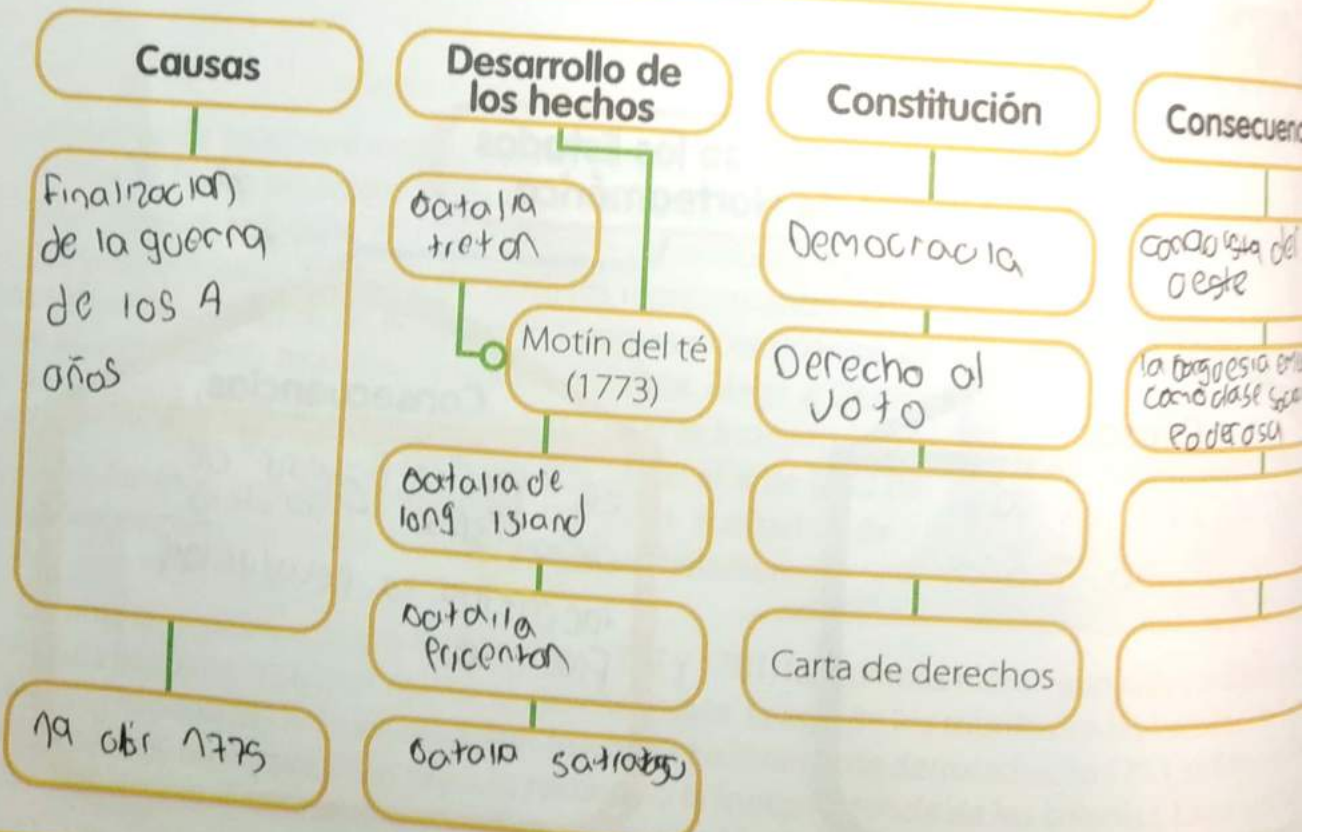 Causas
Finalizacion
de la guerra
de los A
años
19 abr 1775
Desarrollo de
los hechos
batalla
treton
Motín del té
(1773)
batalla de
long island
batalla
Pricenton
batalla
Constitución
Democracia
Derecho al
voto
Carta de derechos
Consecuenc
del
oeste
la burguesia
como clase
Poderosa